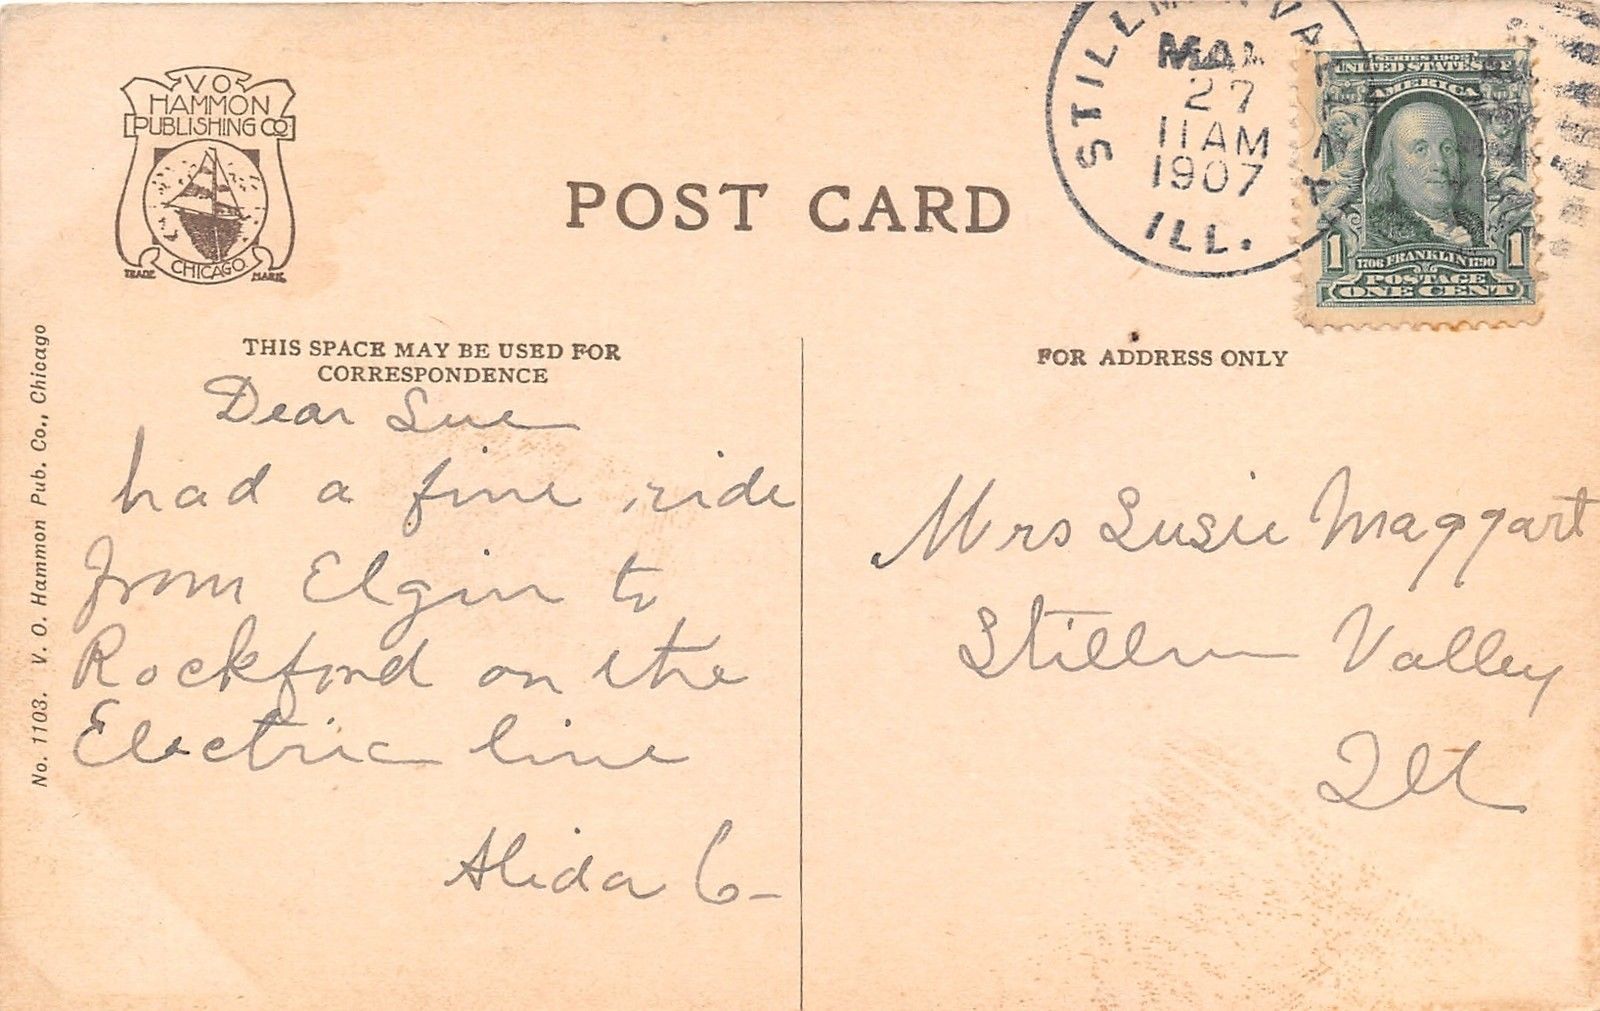 V O
HAMMON
PUBLISHING CO
CHICAGO
TRADE MARK
POST CARD
STILLMAN VALLEY
MAR
27
11 AM
1907
ILL.
SERIES 1902
UNITED STATES OF
AMERICA
1706 FRANKLIN 1790
1 1
POSTAGE
ONE CENT
No. 1103. V. O. Hammon Pub. Co., Chicago
THIS SPACE MAY BE USED FOR
CORRESPONDENCE
Dear Sue
had a fine ride
from Elgin to
Rockford on the
Electric line
Alida C-
FOR ADDRESS ONLY
Mrs Susie Maggart
Stillman Valley
Ill